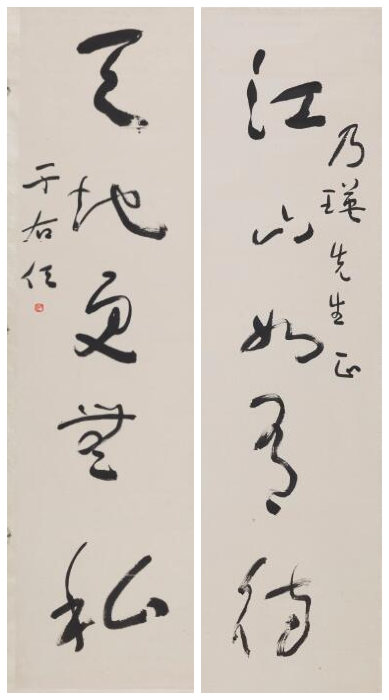 江山如有待
乃瑛先生正
天地更無私
于右任